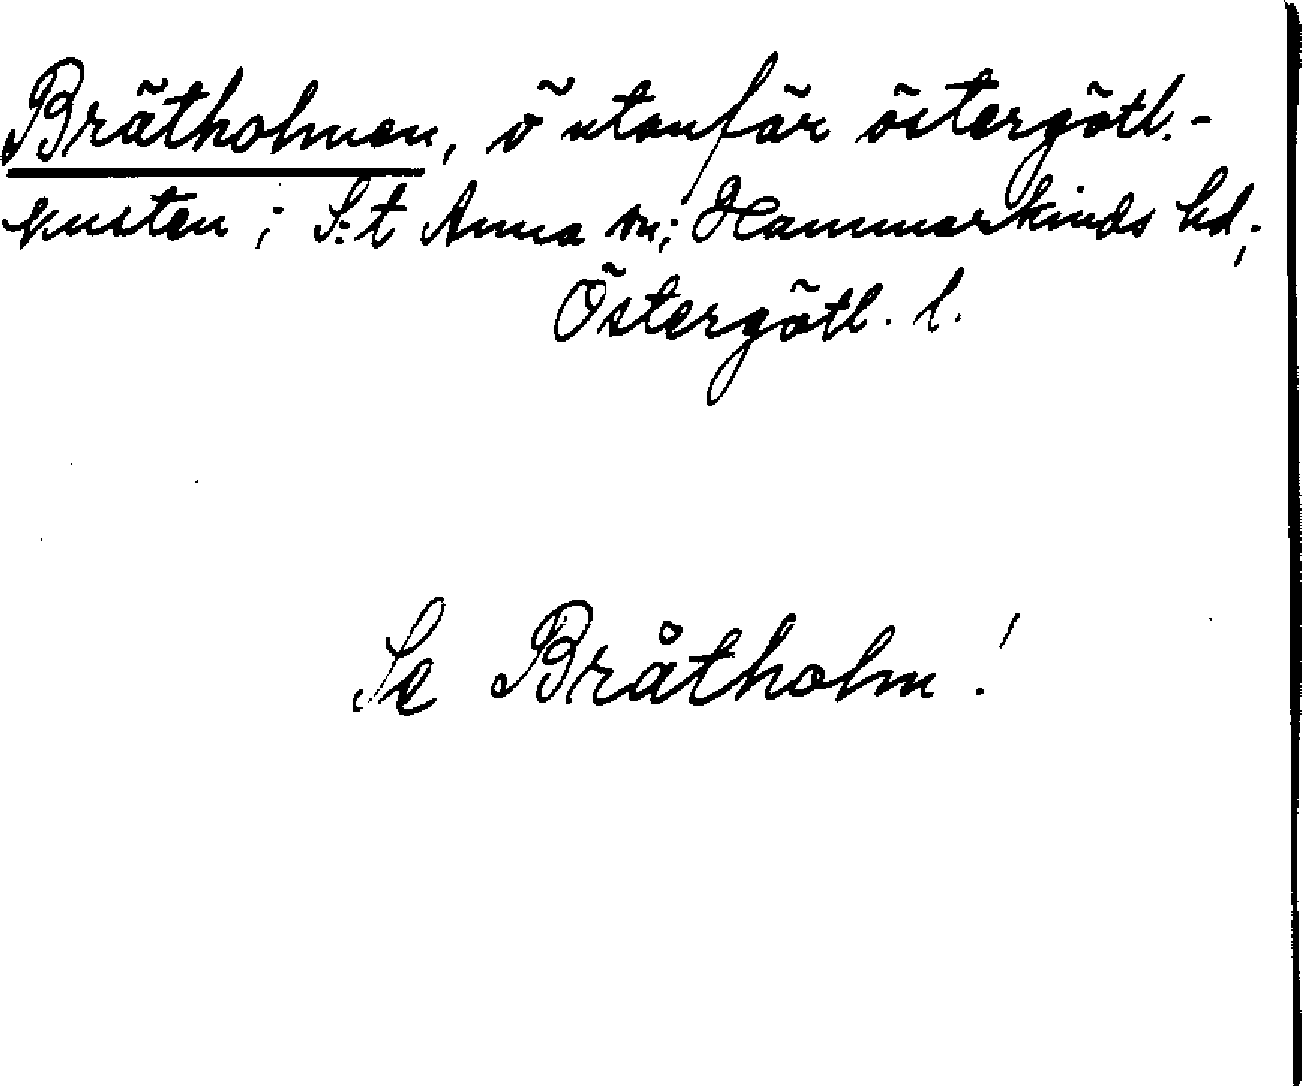 Brätholmen, ö utanför östergötl.-
kusten; S:t Anna sn; Hammarkinds hd;
Östergötl. l.
Se Bråtholm!